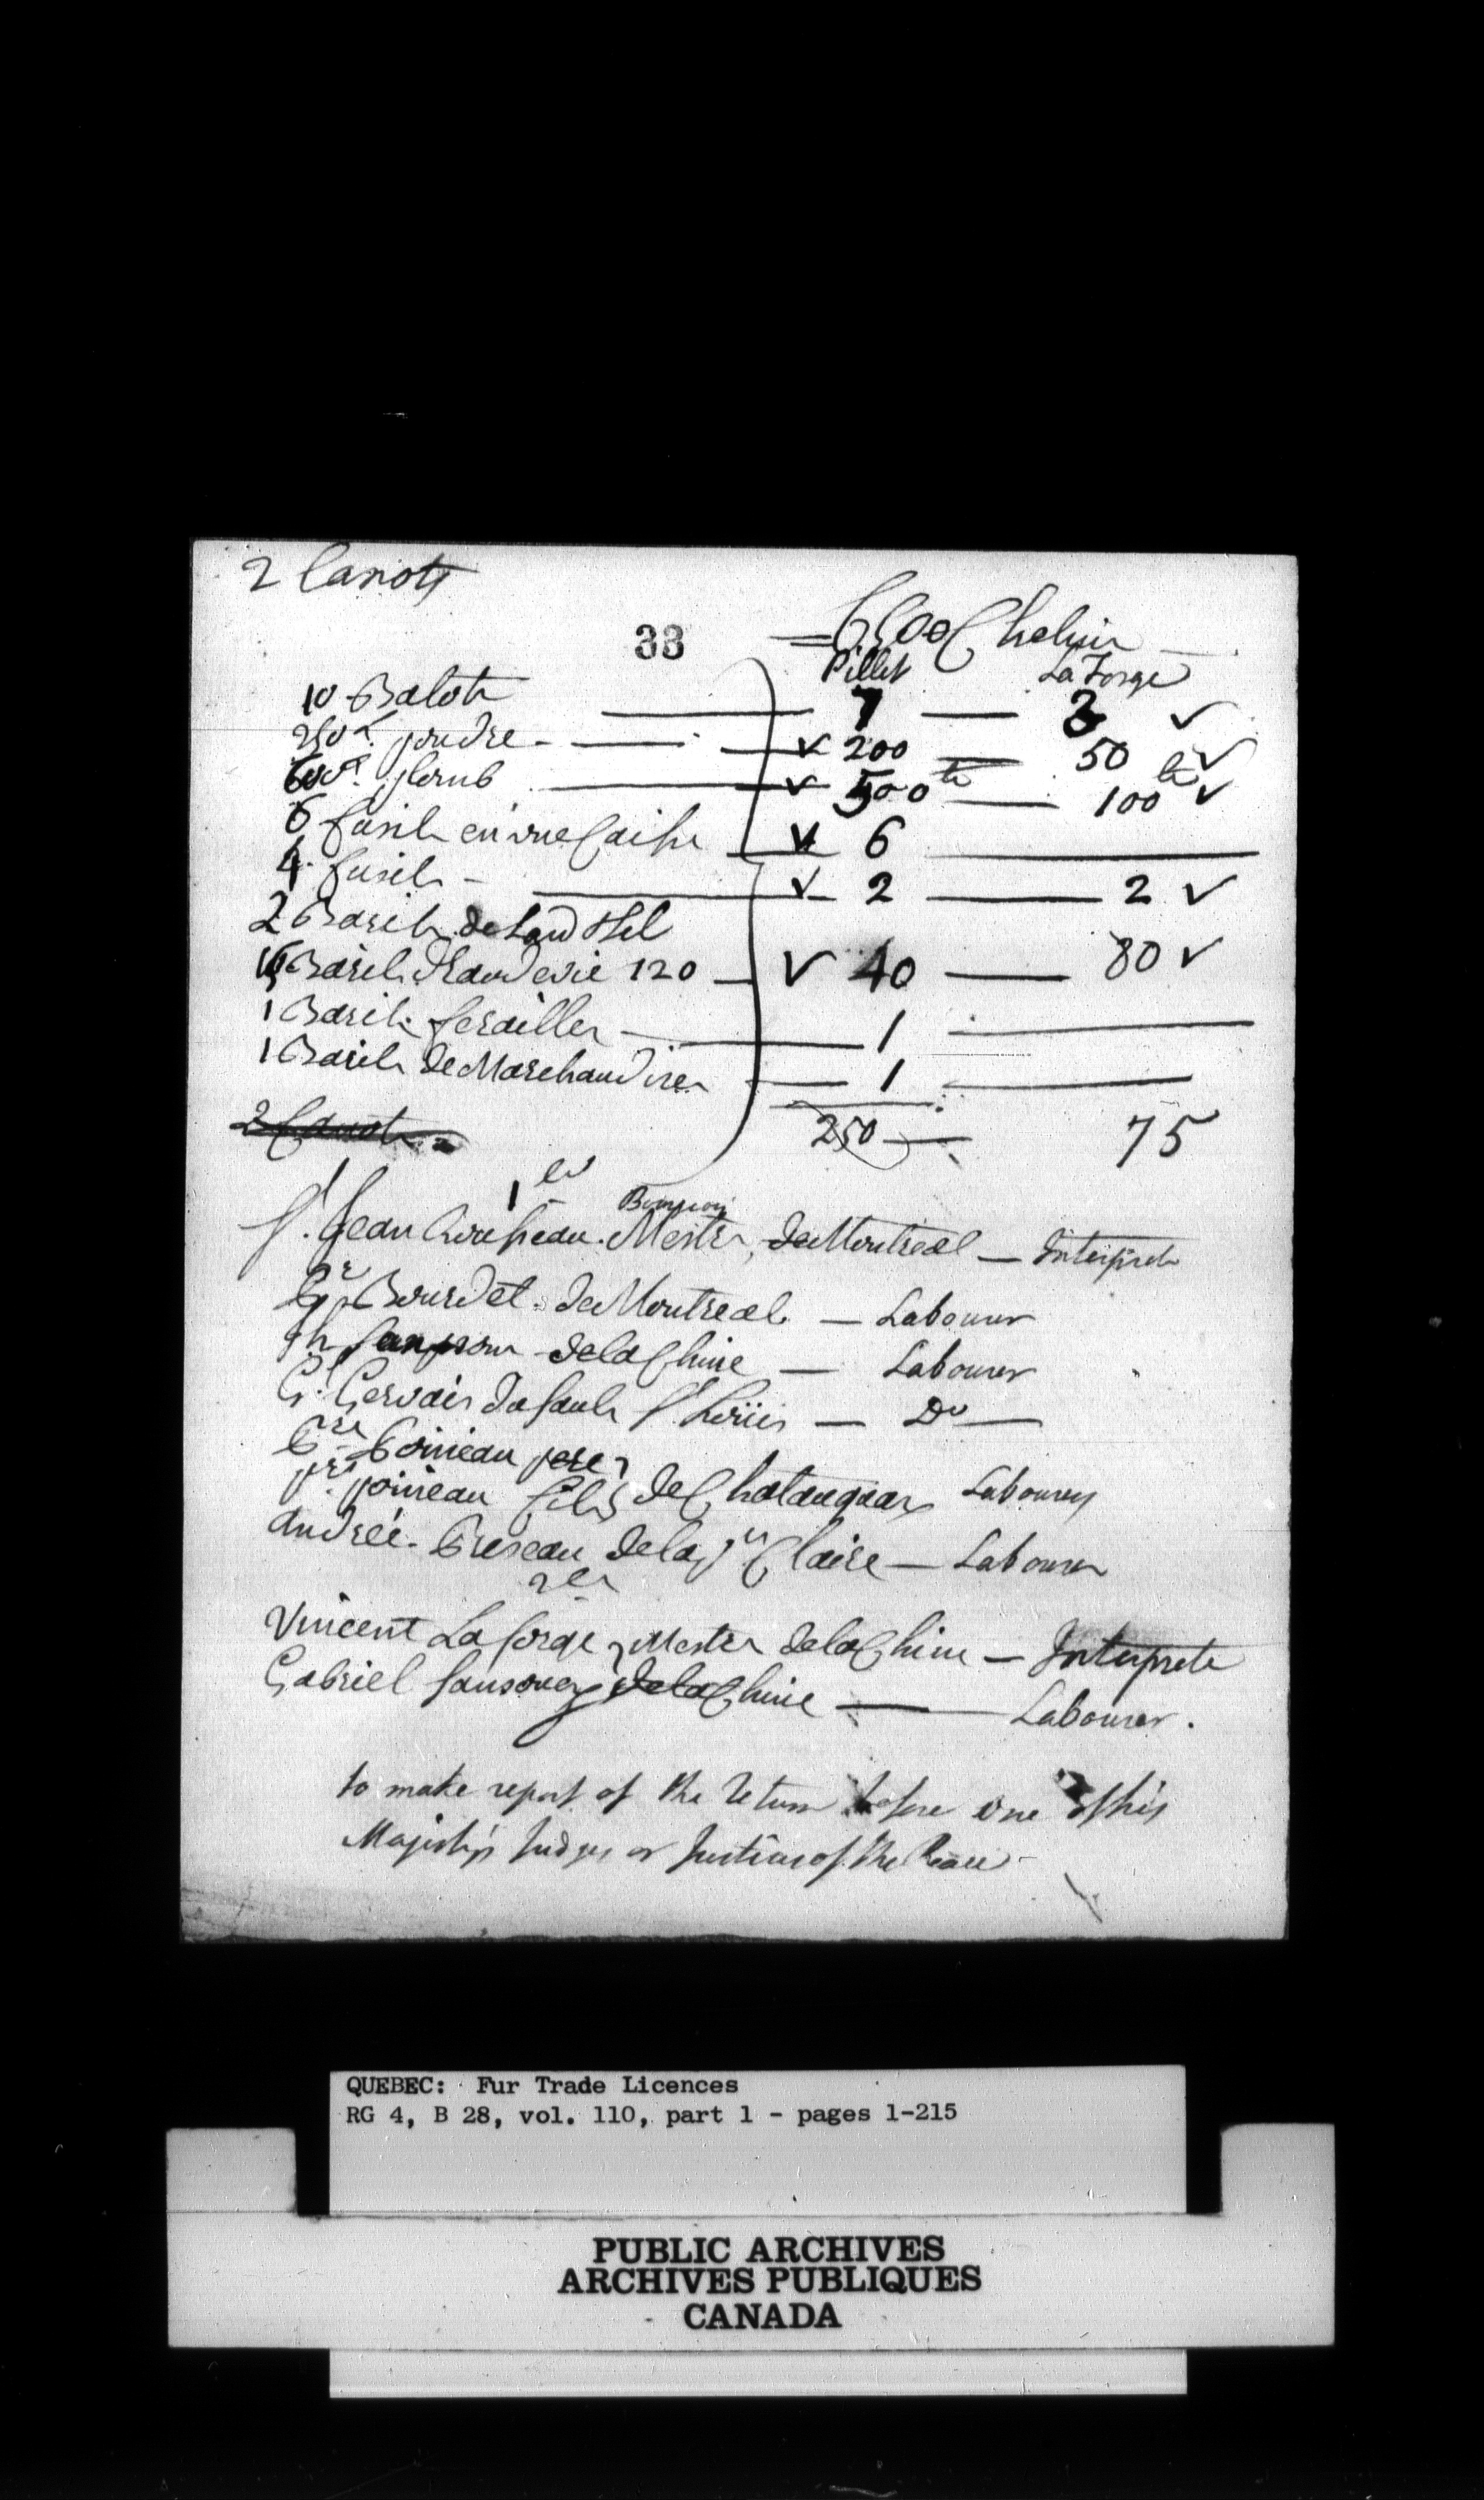 2 Canots
33
= 6500 Chelin
Pillet La Forge
10 Balots — 7 — 3 ✓
250 lt. poudre — ✓ 200 — 50 ✓
600 lt. plomb — ✓ 500 lt — 100 lt ✓
6 fusils en une Caisse — ✓ 6 —
4 fusils — ✓ 2 — 2 ✓
2 Barils de Lard & Sel
Barils d'Eau de vie 120 — ✓ 40 — 80 ✓
1 Barils ferailles — 1 —
1 Barils de Marchandises — 1 —
250 — 75
2 Canots
1er
Bourgeois
St. Jean Rousseau. Mestre, de Montreal — Interprete
Bourdet. de Montreal. — Labourer
Sanssous de la Chine — Labourer
Gervais du Sault St. Louis — Do —
Poirieau pere
pre. poirieau fils de Chataugaux Labourers
Andreé. de la pte Claire — Labourer
2er
Vincent Laforge, Mestre de la Chine — Interprete
Gabriel Sansoucy de la Chine — Labourer.
to make report of the return before one of his
Majesty's Judges or Justices of the Peace —
QUEBEC: Fur Trade Licences
RG 4, B 28, vol. 110, part 1 - pages 1-215
PUBLIC ARCHIVES
ARCHIVES PUBLIQUES
CANADA